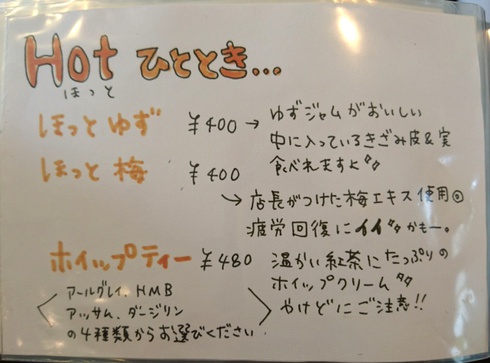 Hot ひととき...
ほっと
ほっと ゆず ¥400 → ゆずジャムがおいしい
中に入っているきざみ皮&実
食べれますよ
ほっと 梅 ¥400
→ 店長がつけた梅エキス使用◎
疲労回復にイイかもー。
ホイップティー ¥480 温かい紅茶にたっぷりの
ホイップクリーム
やけどにご注意!!
アールグレイ、HMB
アッサム、ダージリン
の4種類からお選びください